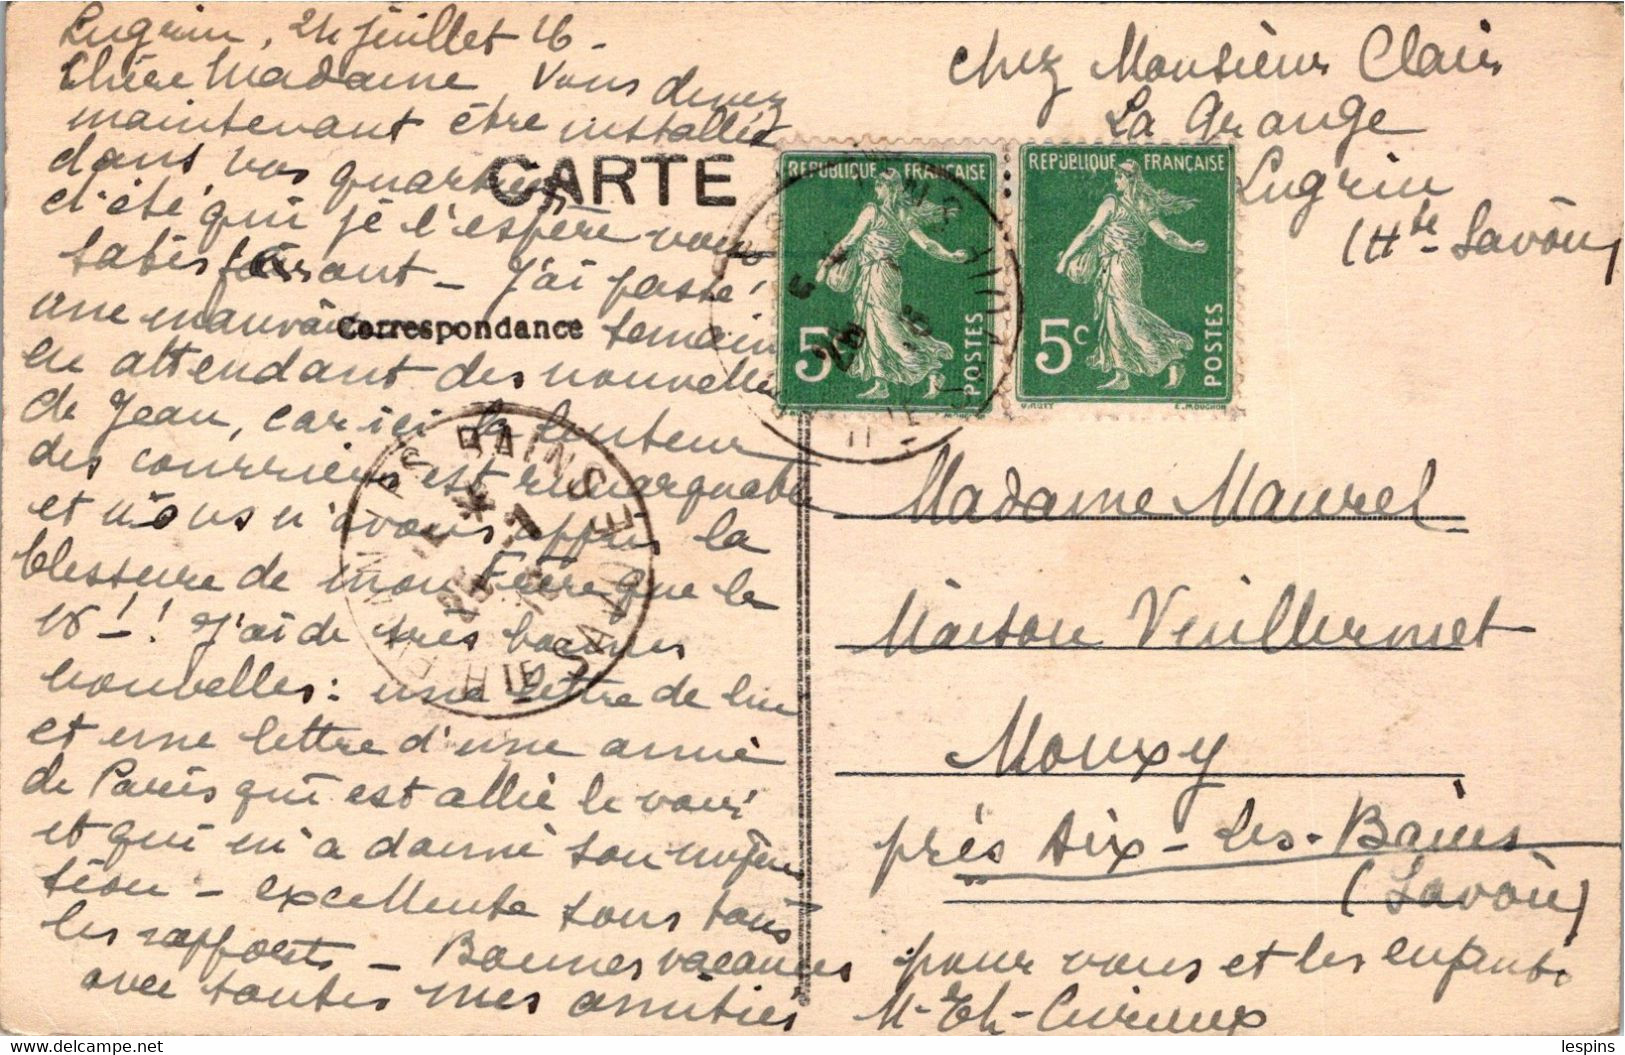 Lugrin, 24 juillet 16 -
Chère Madame Vous devez
maintenant être installée
dans vos quartiers
d'été qui je l'espère vous
satisferont - J'ai passé
une mauvaise semaine
en attendant des nouvelles
de Jean, car ici la lenteur
des courriers est remarquable
et nous n'avons appris la
blessure de mon Frère que le
18 ! - ! J'ai de très bonnes
nouvelles : une lettre de lui
et une lettre d'une amie
de Paris qui est allée le voir
et qui m'a donné son
- excellente sous tous
les rapports - Bonnes vacances
avec toutes mes amitiés
pour vous et les enfants
M - Eth -
chez Monsieur Clair
La Grange
Lugrin
(Hte - Savoie)
CARTE
Correspondance
REPUBLIQUE FRANÇAISE
5
POSTES
REPUBLIQUE FRANÇAISE
5c
POSTES
O.ROTY E.MOUCHON
LES BAINS
HTE SAVOIE
Madame Maurel
Maison Veuillermet
Mouxy
près Aix - les - Bains
(Savoie)
lespins